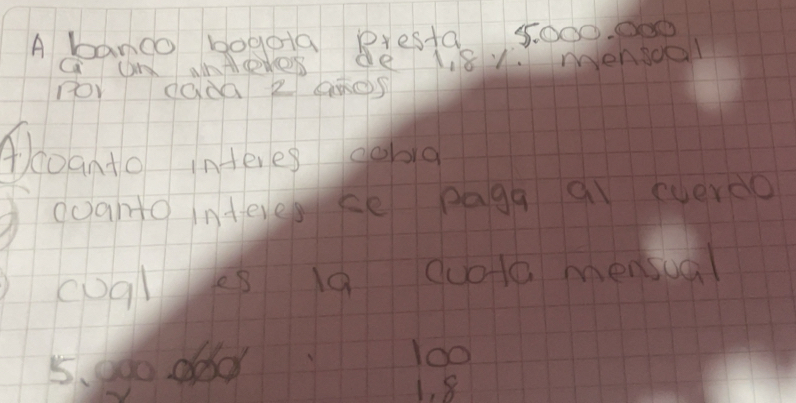 A banco bogota Presta 5.000.000
a un interes de 1,8 %. mensual
Por cada 2 años
A) coanto interes cobra
coanto interes se paga al cuerdo
cual es la cuota mensual
5.000.000 100
1,8